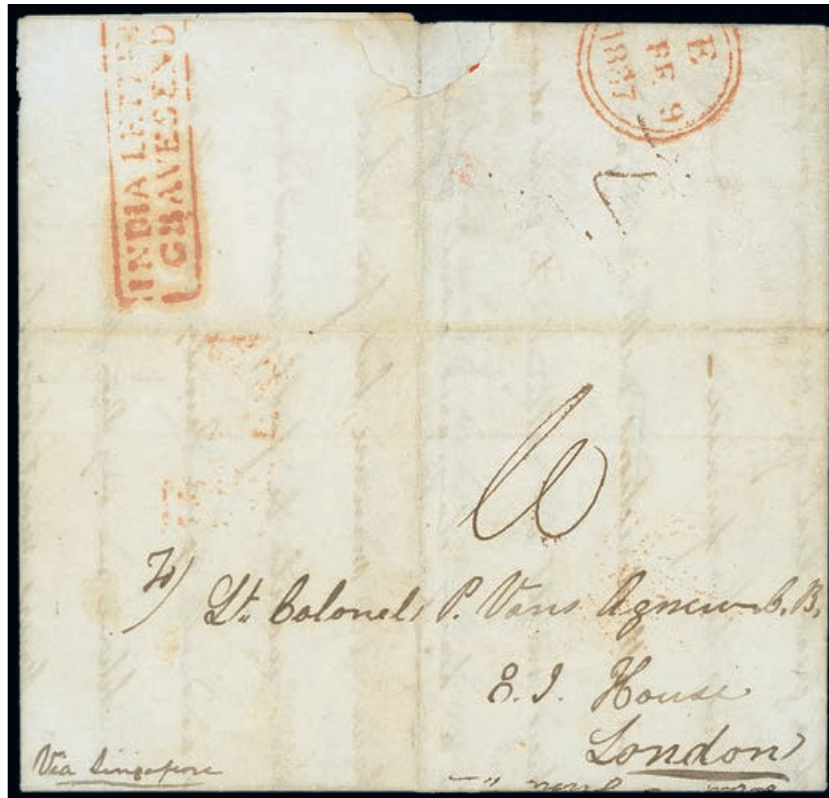 INDIA LETTER
GRAVESEND
E
FE 9
1837
Lt. Colonel P. Vans Agnew C.B.
E. I. House
London
Via Singapore